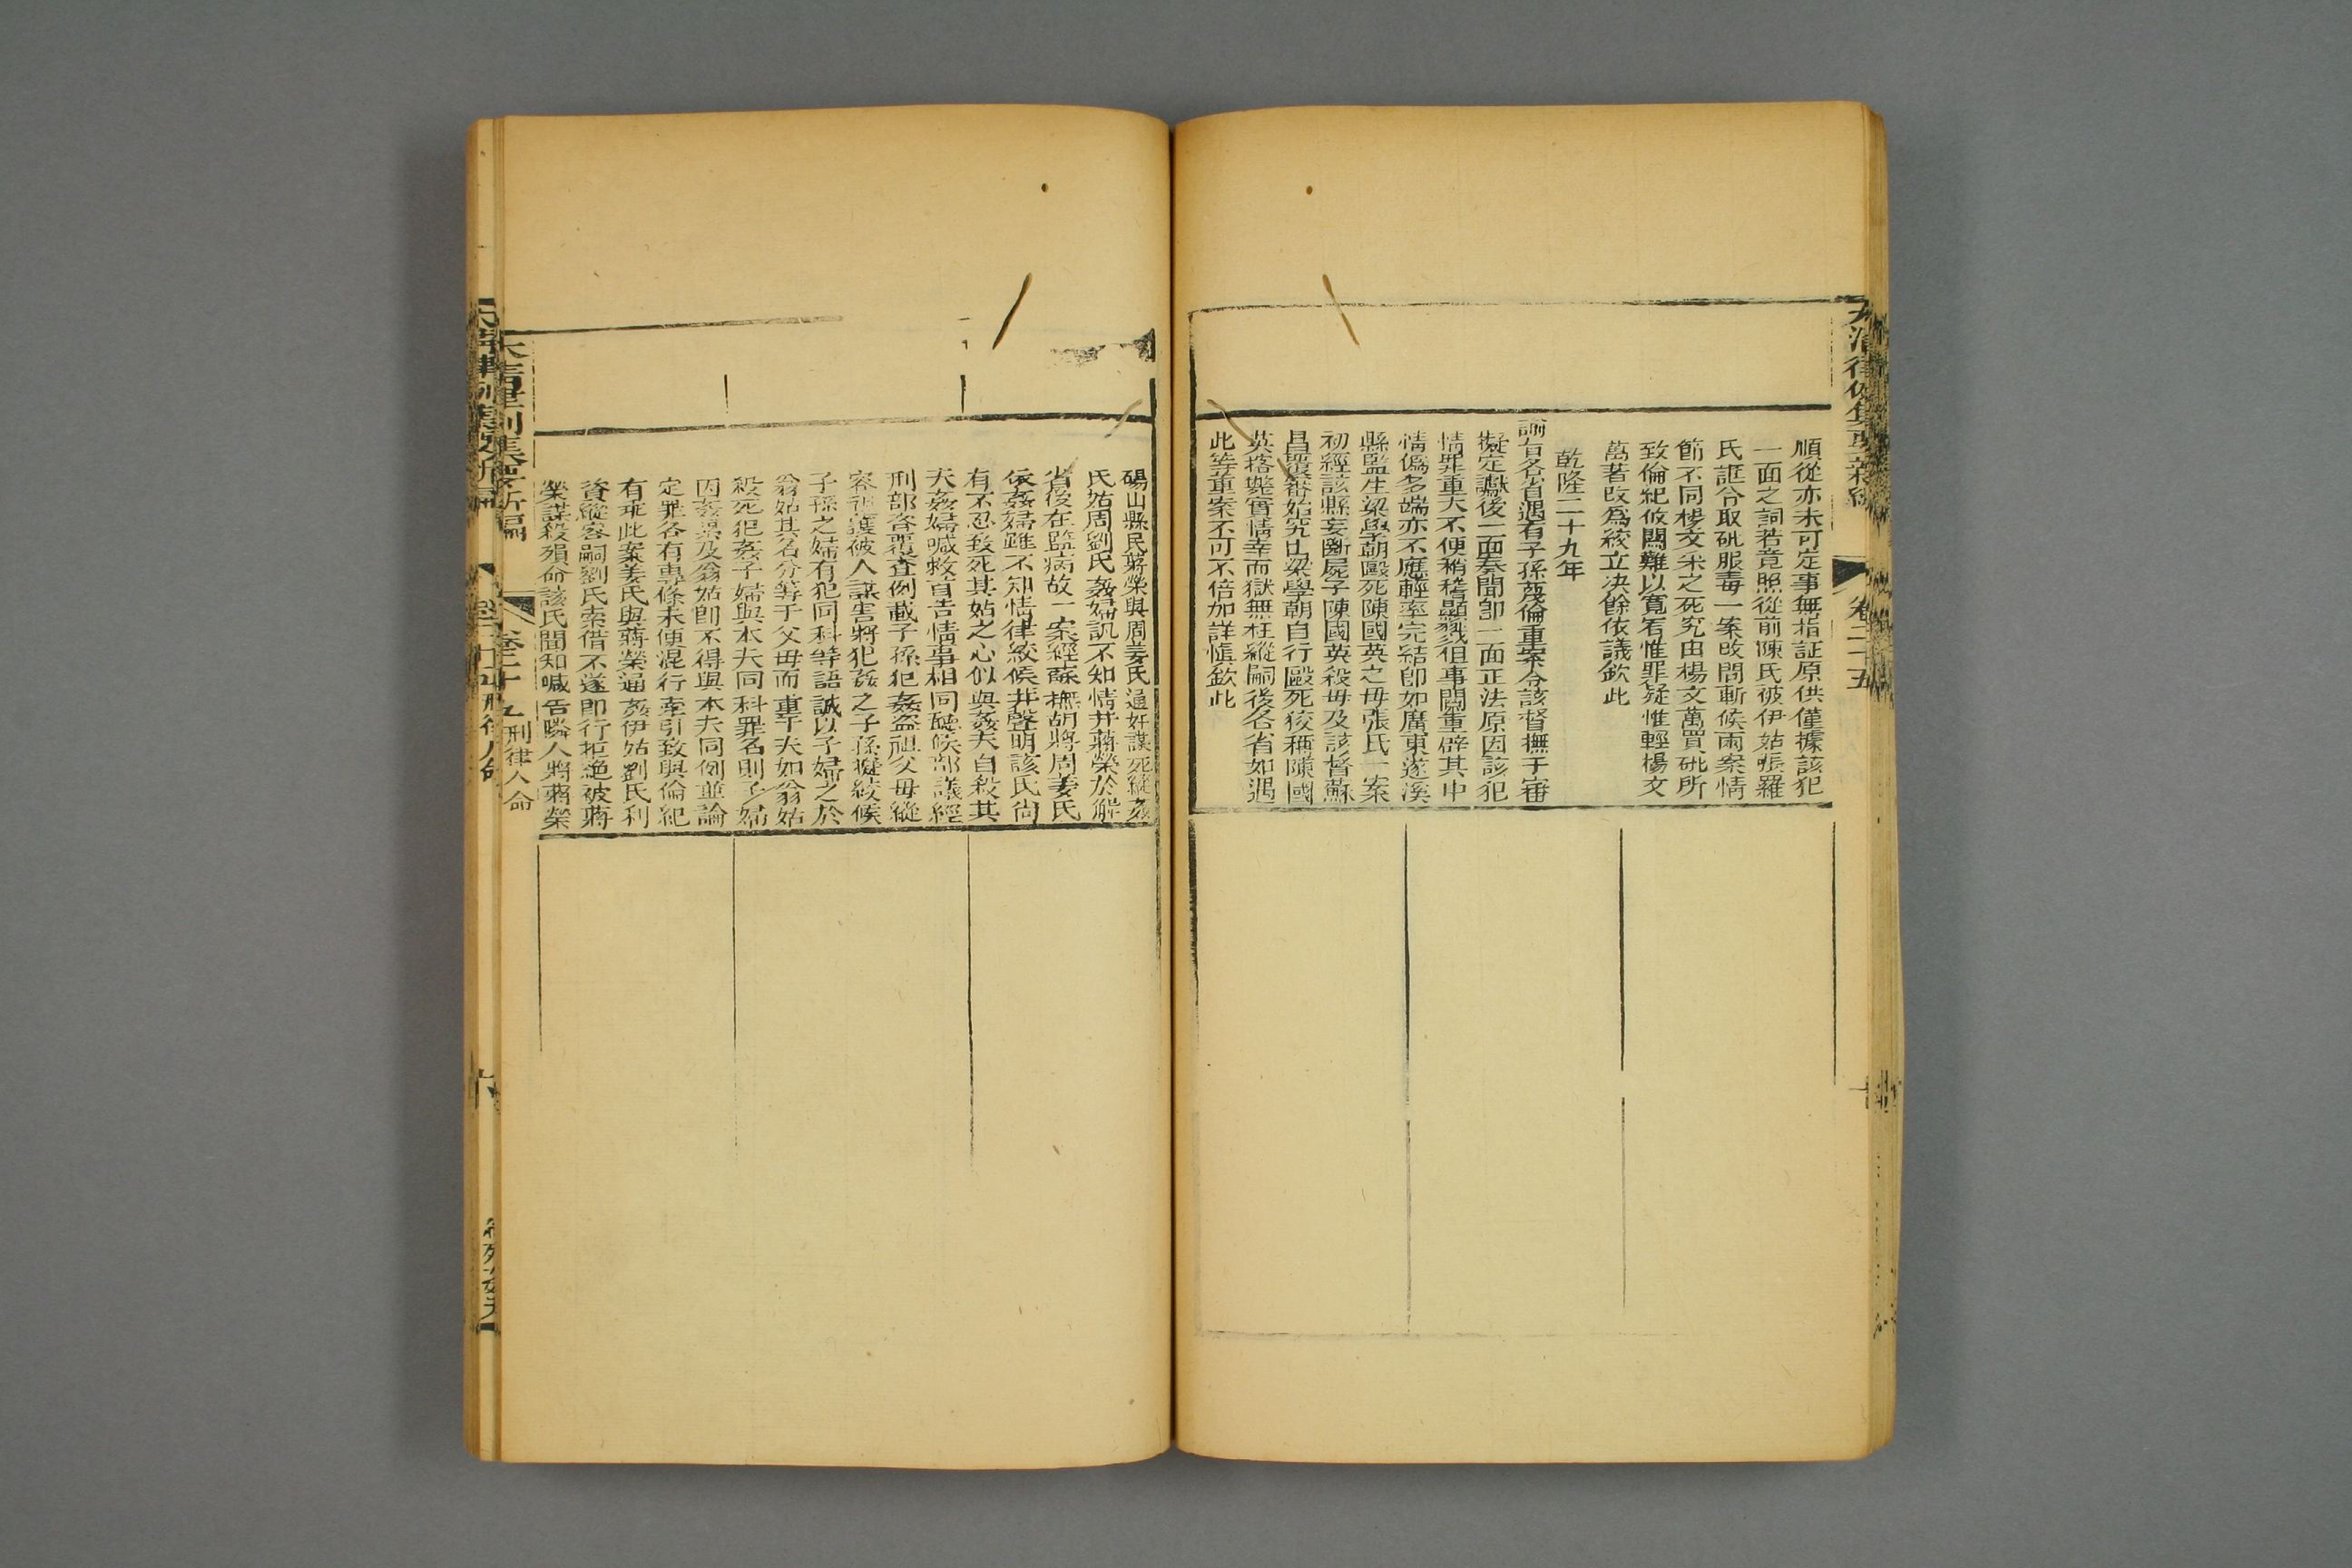 大清律例集要新編
卷二十五
順從亦未可定事無指証原供僅據該犯
一面之詞若竟照從前陳氏被伊姑張羅
氏誆令取砒服毒一案改問斬候兩案情
節不同楊文采之死究由楊文萬買砒所
致倫紀攸關難以寬宥惟罪疑惟輕楊文
萬著改為絞立决餘依議欽此
乾隆二十九年
諭旨各省遇有子孫蔑倫重案令該督撫于審
擬定讞後一面奏聞卽一面正法原因該犯
情罪重大不便稍稽顯戮但事關重辟其中
情偽多端亦不應輕率完結卽如廣東遂溪
縣監生梁學朝毆死陳國英之母張氏一案
初經該縣妄斷屍子陳國英殺母及該督蘇
昌覆審始究出梁學朝自行毆死狡稱陳國
英搭斃實情幸而獄無枉縱嗣後各省如遇
此等重案不可不倍加詳慎欽此
碭山縣民蔣榮與周姜氏通奸謀死縱姦
氏姑周劉氏姦婦訊不知情并蔣榮於解
省後在監病故一案經蘇撫胡將周姜氏
依姦婦雖不知情律絞候并聲明該氏尚
有不忍致死其姑之心似與姦夫自殺其
夫姦婦喊救首告情事相同聽候部議經
刑部咨覆查例載子孫犯姦盜祖父母縱
容袒護被人謀害將犯姦之子孫擬絞候
子孫之婦有犯同科等語誠以子婦之於
翁姑其名分等于父母而重于夫如翁姑
殺死犯姦子婦與本夫同科罪名則子婦
因姦累及翁姑卽不得與本夫同例並論
定罪各有專條未便混行牽引致與倫紀
有乖此案姜氏與蔣榮通姦伊姑劉氏利
資縱容嗣劉氏索借不遂卽行拒絕被蔣
榮謀殺殞命該氏聞知喊告隣人將蔣榮
大清律例集要新編
卷二十五
刑律人命